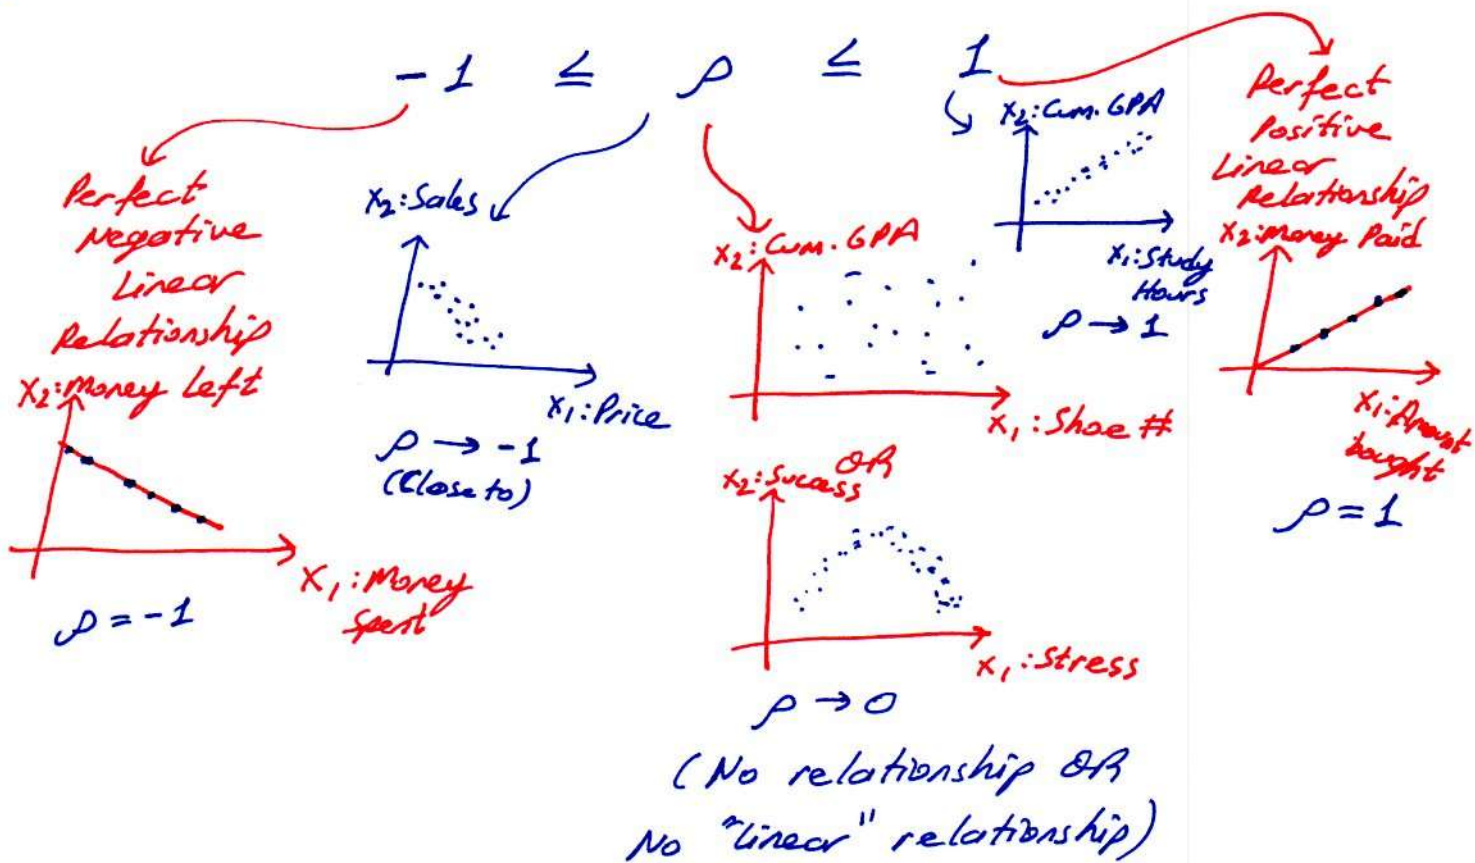 -1 ≤ ρ ≤ 1
Perfect
Negative
Linear
Relationship
x₂:Money Left
x₁:Money
Spent
ρ=-1
x₂:Sales
x₁:Price
ρ → -1
(Close to)
x₂:Cum.GPA
x₁:Shoe #
OR
x₂:Success
x₁:Stress
ρ → 0
(No relationship OR
No "linear" relationship)
x₂:Cum.GPA
x₁:Study
Hours
ρ → 1
Perfect
Positive
Linear
Relationship
x₂:Money Paid
x₁:Amount
bought
ρ = 1